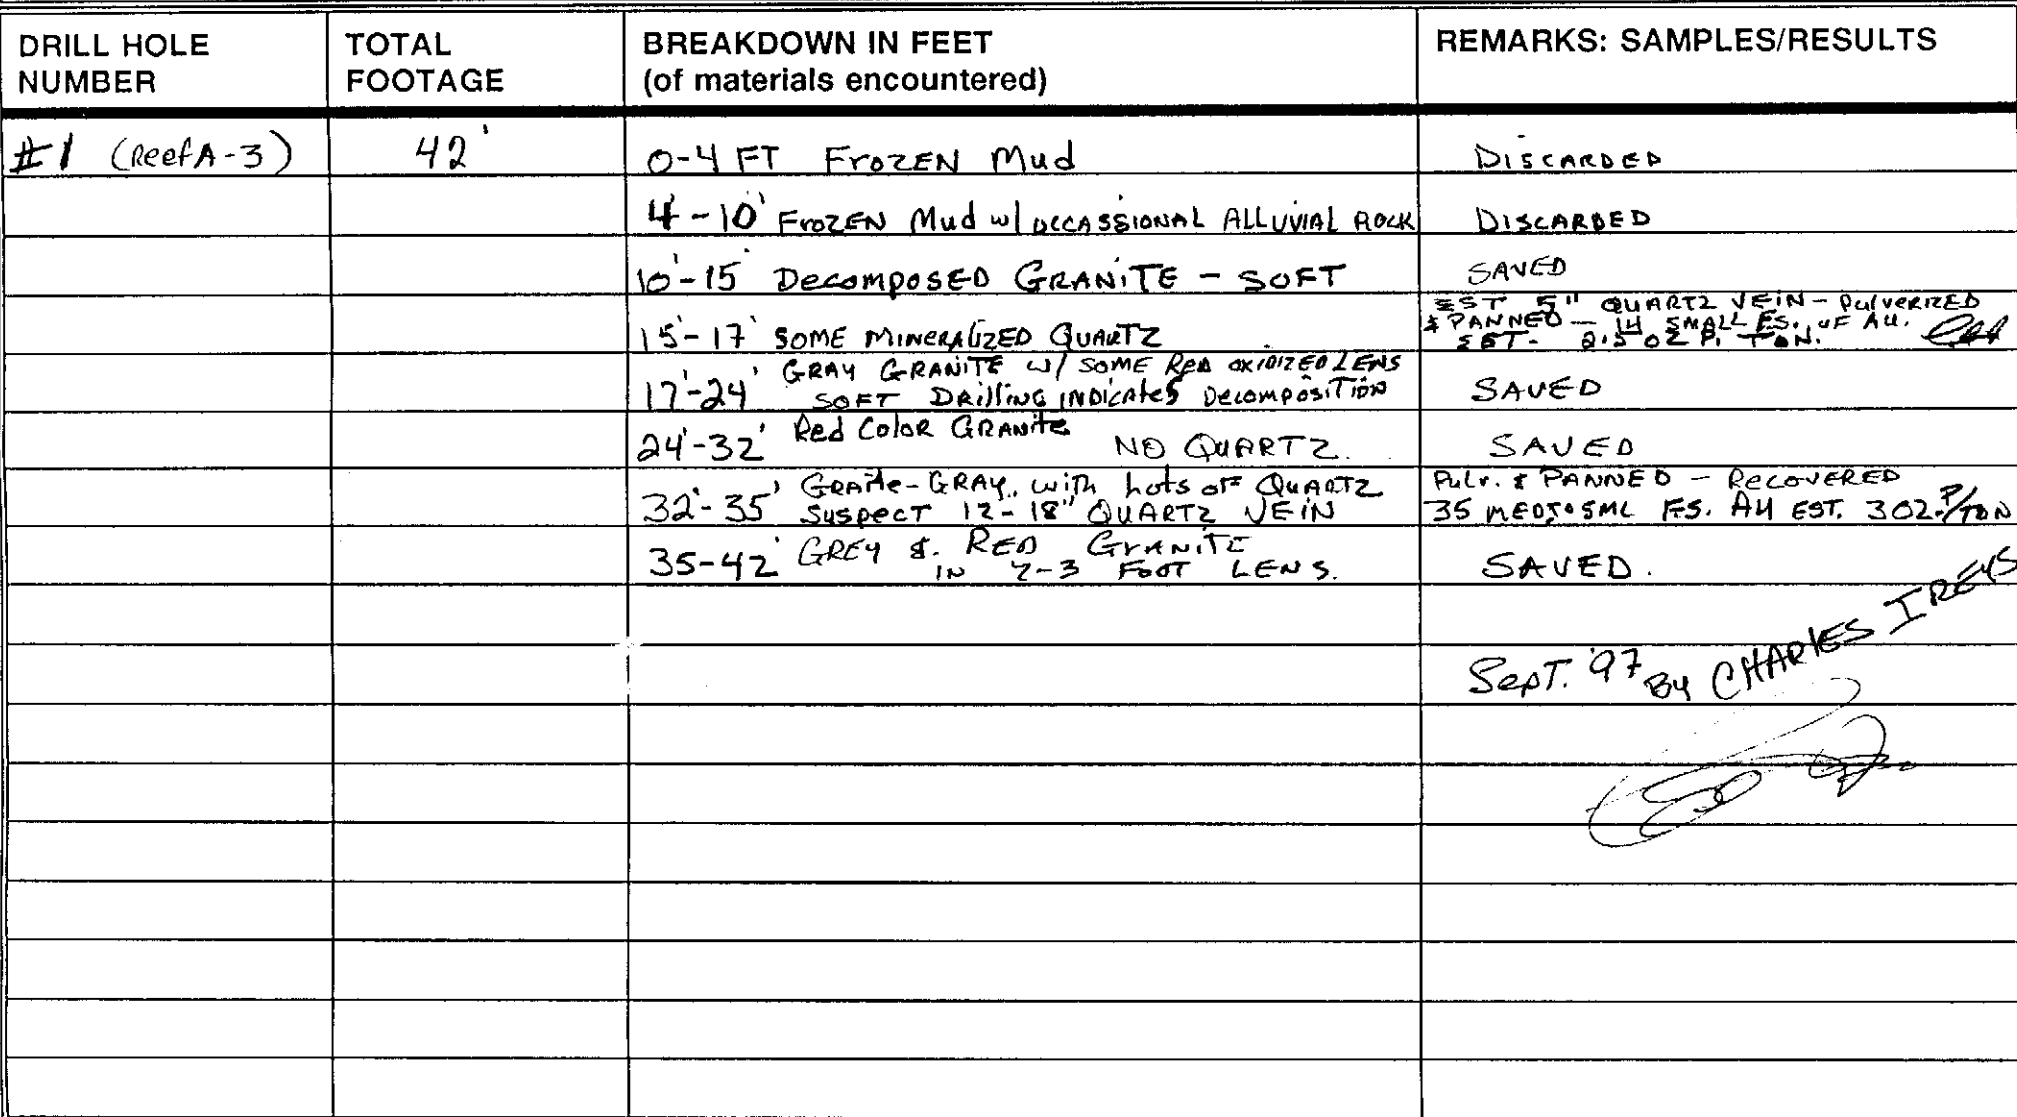 DRILL HOLE NUMBER
TOTAL FOOTAGE
BREAKDOWN IN FEET
(of materials encountered)
REMARKS: SAMPLES/RESULTS
#1 (Reef A-3) 42' 0-4 FT Frozen Mud DISCARDED
4'-10' Frozen Mud w/ occassional ALLUVIAL ROCK DISCARDED
10'-15' Decomposed GRANITE - SOFT SAVED
15'-17' SOME MINERALIZED QUARTZ
EST 5" QUARTZ VEIN - Pulverized
& PANNED - 14 SMALL FS. OF AU.
EST- 2.5 OZ P. TON.
17'-24' GRAY GRANITE w/ SOME Red oxidized LENS
SOFT Drilling indicates Decomposition SAVED
24'-32' Red Color GRANite NO QUARTZ. SAVED
32'-35' Graite-GRAY, with Lots of QUARTZ
Suspect 12-18" QUARTZ VEIN
Pulv. & PANNED - RECOVERED
35 MED to SML FS. AU EST. 3 OZ. P/TON
35-42' GREY & RED GRANITE
IN 2-3 FOOT LENS. SAVED.
Sept. '97 By CHARLES IREYS